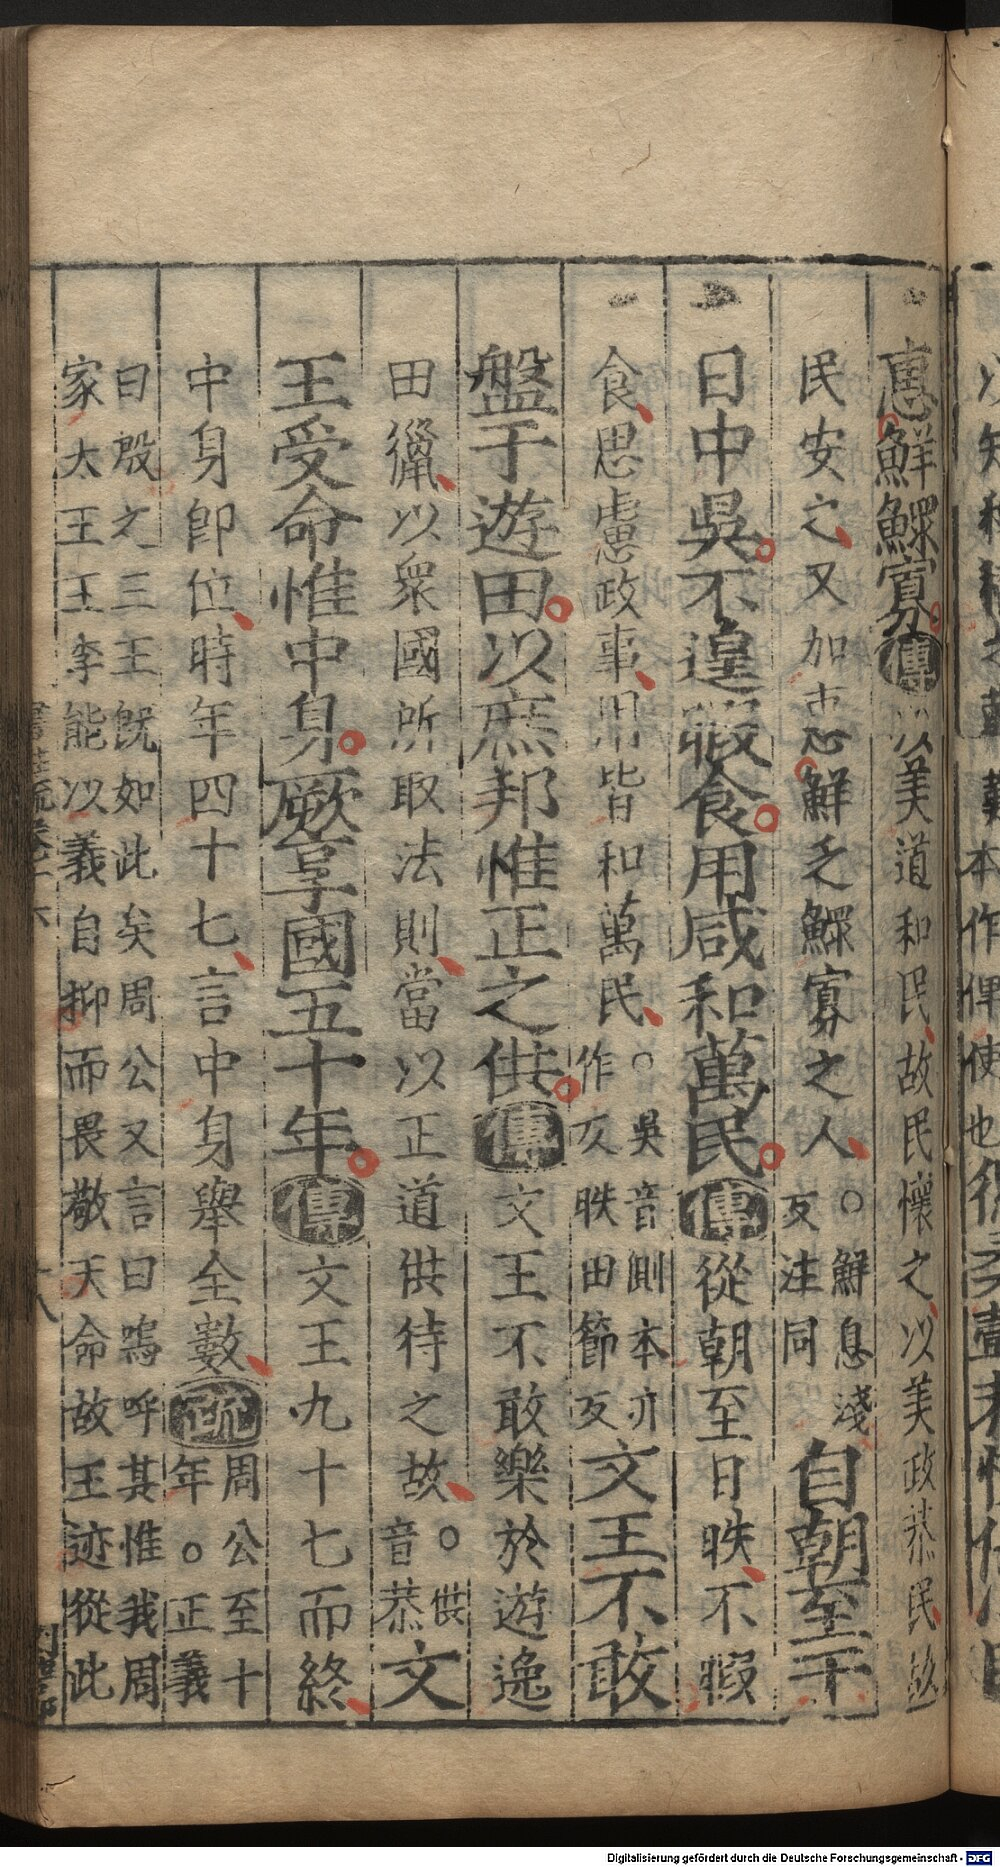 惠鮮鰥寡傳以美道和民故民懷之以美政恭民故
民安之又加惠鮮乏鰥寡之人○鮮息淺反注同自朝至于
日中吳不遑暇食用咸和萬民傳從朝至日昳不暇
食思慮政事用皆和萬民○吳音側本亦作仄昳田節反文王不敢
盤于遊田以庶邦惟正之供傳文王不敢樂於遊逸
田獵以衆國所取法則當以正道供待之故○供音恭文
王受命惟中身厥享國五十年傳文王九十七而終
中身卽位時年四十七言中身舉全數疏周公至十年○正義
曰殷之三王旣如此矣周公又言曰嗚呼其惟我周
家太王王季能以義自抑而畏敬天命故王迹從此
十八
Digitalisierung gefördert durch die Deutsche Forschungsgemeinschaft - DFG